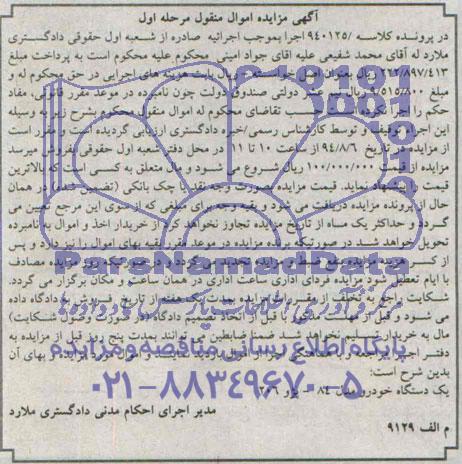 آگهی مزایده اموال منقول مرحله اول
در پرونده کلاسه /۹۴۰۱۲۵ اجرا بموجب اجرائیه صادره از شعبه اول حقوقی دادگستری
ملارد له آقای محمد شفیعی علیه اقای جواد امینی محکوم علیه محکوم است به پرداخت مبلغ
۲۲۲/۸۹۷/۴۱۳ ریال بعنوان اصل خواسته ریال بابت هزینه های اجرایی در حق محکوم له و
مبلغ ۹/۵۱۵/۸۰۰ ریال نیم عشر دولتی صندوق دولت چون نامبرده در موعد مقرر قانونی مفاد
حکم را اجرا نکرده تقاضای محکوم له اموال منقول محکوم بشرح زیر به وسیله
این اجراء توقیف و توسط کارشناس رسمی/خبره دادگستری ارزیابی گردیده است و مقرر است
از مزایده در تاریخ ۹۴/۸/۶ از ساعت ۱۰ تا ۱۱ در محل دفتر شعبه اول حقوقی بفروش میرسد
مزایده از قیمت ۱۰۰/۰۰۰/۰۰۰ ریال شروع می شود و مال متعلق به کسی است که بالاترین
قیمت را پیشنهاد نماید. قیمت مزایده بصورت وجه نقد یا چک بانکی (تضمین شده) در همان
حال از برنده مزایده دریافت می شود و بقیه وجه برای مبلغی که از سوی این مرجع تعیین می
گردد و حداکثر یک ماه از تاریخ مزایده تجاوز نخواهد کرد از خریدار اخذ و اموال به نامبرده
تحویل خواهد شد در صورتیکه برنده مزایده در موعد مقرر بقیه بهای اموال را نپردازد و پس
از کسر هزینه مزایده ضبط و مزایده تجدید می گردد روز مزایده مصادف
با ایام تعطیل شود مزایده فردای اداری ساعت اداری در همان ساعت و مکان برگزار می گردد.
شکایت راجع به تخلف از مقررات مزایده بمدت یک هفته از تاریخ فروش به دادگاه داده
می شود و قبل از قبل از اتخاذ تصمیم دادگاه (در صورت وصول شکایت)
مال به خریدار تسلیم نخواهد شد ضمنا می توانند بمدت پنج روز قبل از مزایده به
دفتر اجرا مراجعه و با هماهنگی اجرا از اموال بازدید مورد مزایده و بهای آن
بدین شرح است:
یک دستگاه خودرو مدل ۸۴ پژو
مدیر اجرای احکام مدنی دادگستری ملارد
م الف ۹۱۲۹
ParsNamadData
پایگاه اطلاع رسانی مناقصه و مزایده
۰۲۱-۸۸۳۴۹۶۷۰-۵